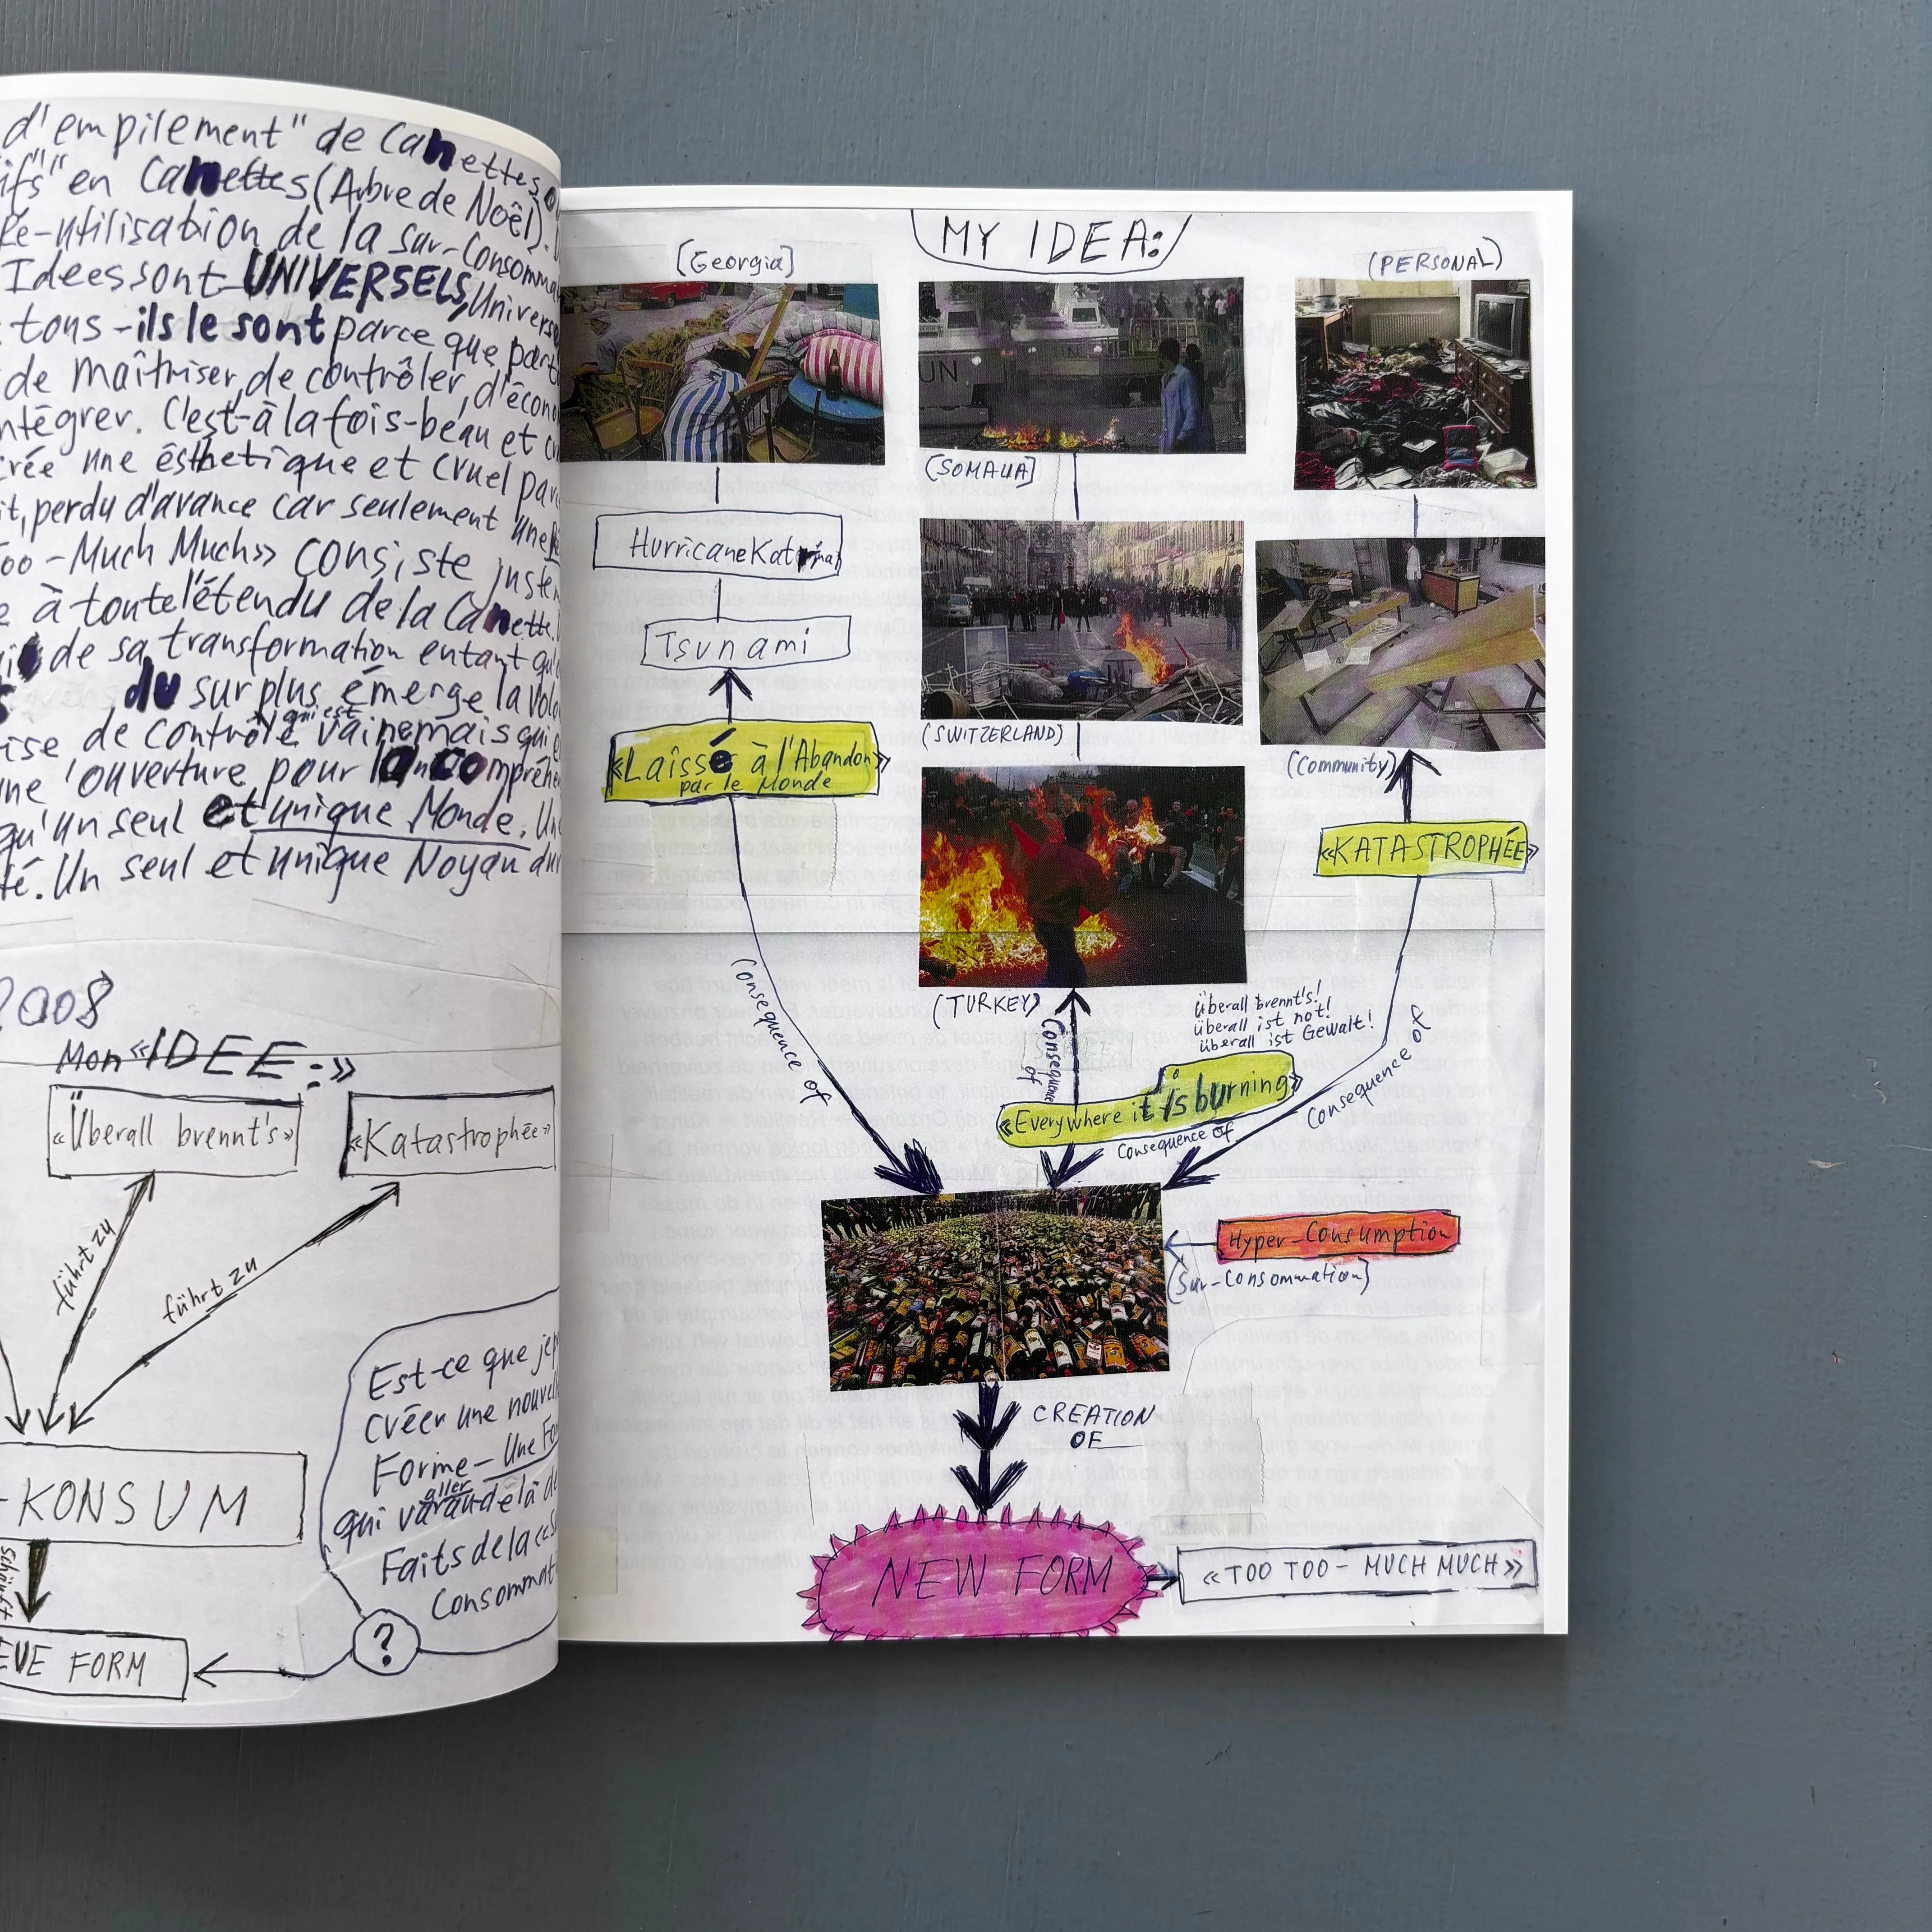 d'empilement" de Canettes
en Canettes (Arbre de Noël).
Ré-utilisation de la sur-Consomma
Idees sont UNIVERSELS, Universe
tous - ils le sont parce que part
de maîtriser, de contrôler, d'écono
ntégrer. C'est-à la fois-beau et cr
crée une ésthetique et cruel par
it, perdu d'avance car seulement une
oo - Much Much» consiste juste
e à toute l'étendu de la Canette.
de sa transformation entant qu'
du surplus émerge la volo
ise de contrôle qui est vaine mais qui
une l'ouverture pour la compréhe
qu'un seul et unique Monde. Un
té. Un seul et unique Noyau du
2008
Mon «IDEE:»
«Überall brennt's»
«Katastrophée»
führt zu
führt zu
-KONSUM
EUE FORM
Est-ce que je
créer une nouvell
Forme - Une Fo
qui va aller au delà de
Faits de la «S
Consommat
?
MY IDEA:
(Georgia)
(PERSONAL)
(SOMALIA)
UN
Hurricane Katrina
Tsunami
(SWITZERLAND)
«Laissé à l'Abandon»
par le Monde
(Community)
«KATASTROPHÉE»
(TURKEY)
Überall brennt's!
überall ist not!
überall ist Gewalt!
Consequence of
Consequence of
Consequence of
«Everywhere it is burning»
Consequence of
Hyper-Consumption
(Sur-Consommation)
CREATION
OF
NEW FORM
«TOO TOO - MUCH MUCH»